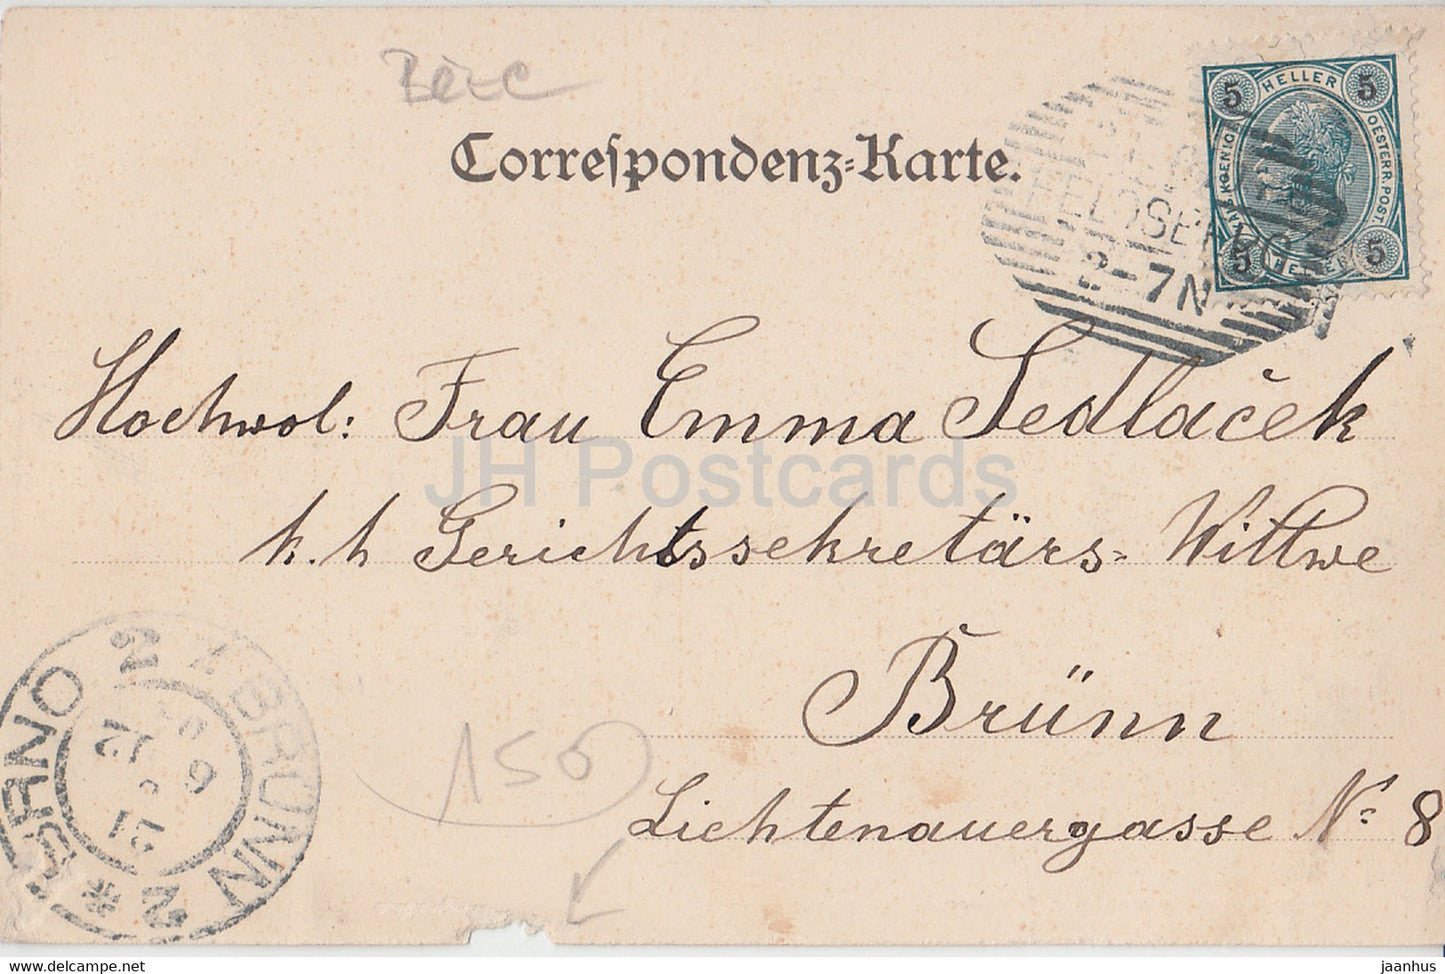 Correspondenz-Karte.
HELLER
5 5
KAIS. KOENIGL. OESTERR. POST
5 5
HELLER
2-7N
Hochwol: Frau Emma Sedlaček
k. k Gerichtssekretärs- Wittwe
Brünn
Lichtenauergasse No 8
150
BRÜNN 2
BRNO 2
JH Postcards
www.delcampe.net
jaanhus